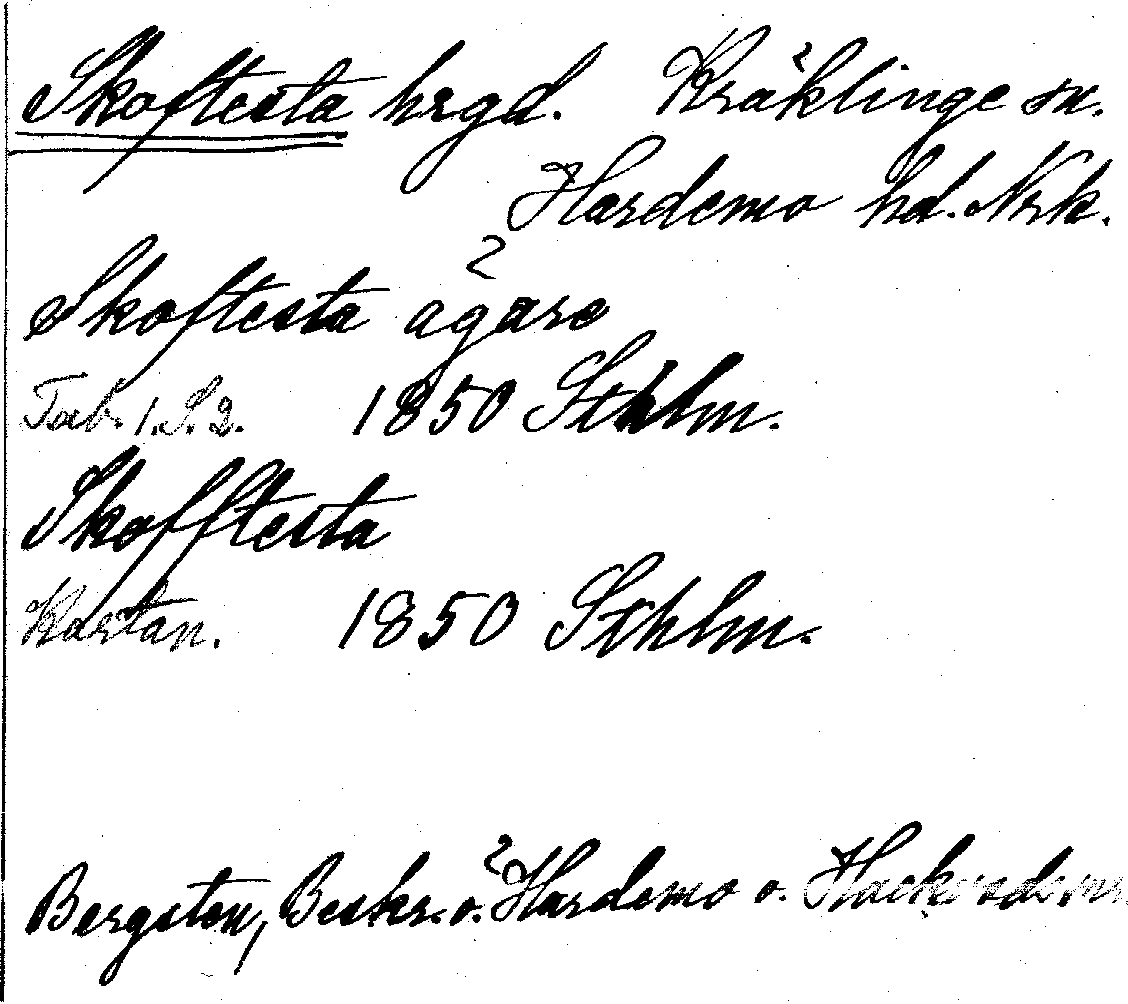 Skoftesta hrgd. Kräklinge sn.
Hardemo hd. Nrk.
Skoftesta ägare
Tab. 1. S. 2. 1850 Sthlm.
Skofftesta
Kartan. 1850 Sthlm.
Bergsten, Beskr. ö. Hardemo o.